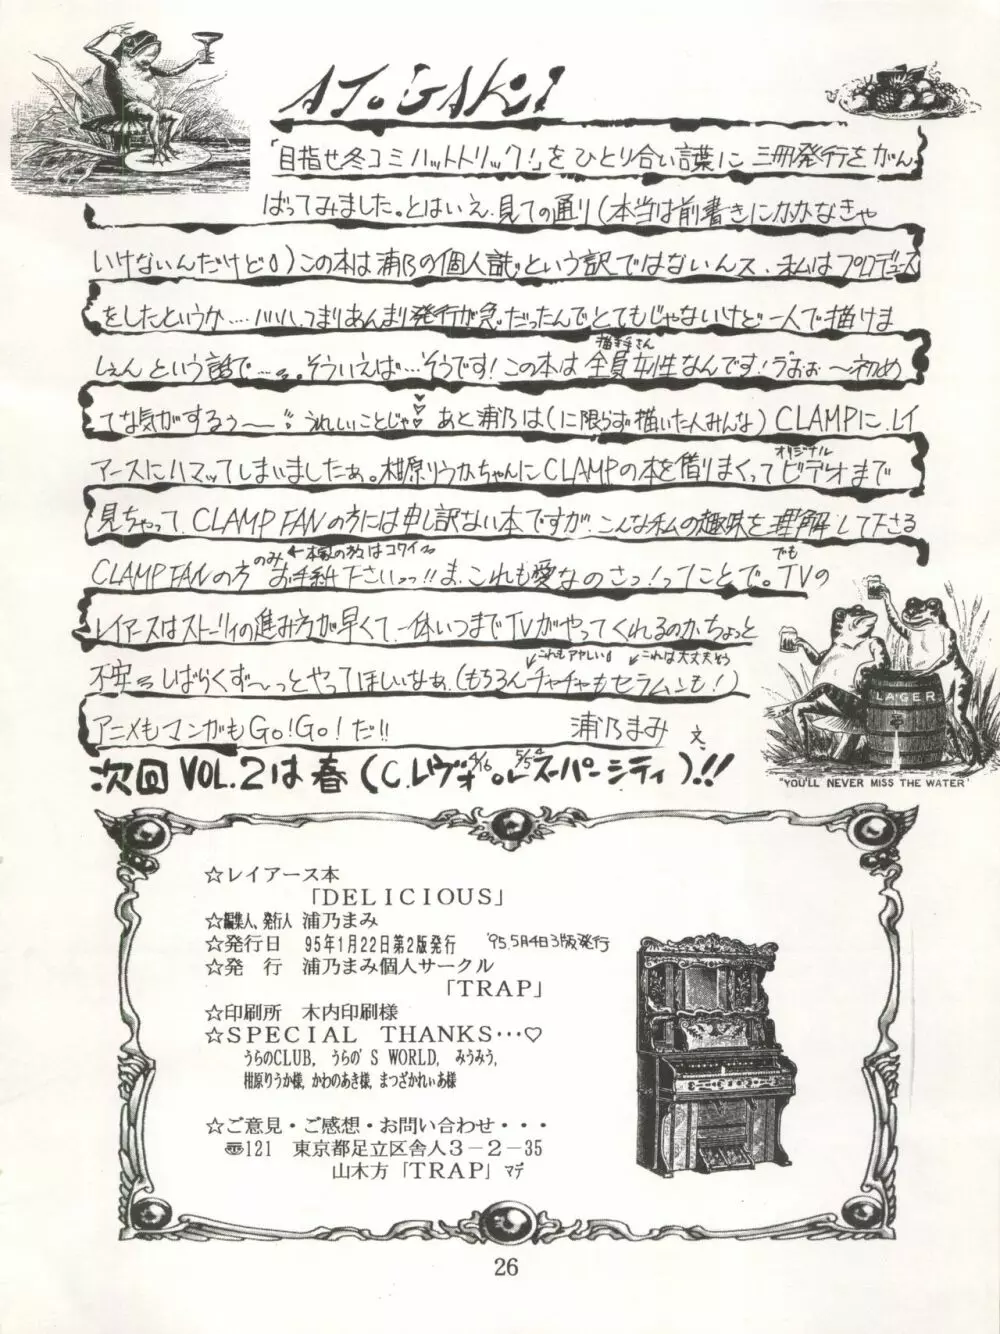 ATOGAKI
「目指せ冬コミハットトリック!」をひとり合い言葉に 三冊発行をがん
ばってみました。とはいえ、見ての通り(本当は前書きにかかなきゃ
いけないんだけど)この本は浦乃の個人誌という訳ではないんス、私はプロデュース
をしたというか……ハハハ、つまりあんまり発行が急だったんでとてもじゃないけど一人で描けま
しぇんという話で……。そういえば…そうです!この本は全員女性なんです!うおぉ〜初め
描き手さん
てな気がするぅ〜〜 うれしいことじゃ♥ あと浦乃は(に限らず描いた人みんな)CLAMPに、レイ
アースにハマッてしまいましたぁ。柑原りうかちゃんにCLAMPの本を借りまくってビデオまで
オリジナル
見ちゃって、CLAMP FANの方には申し訳ない本ですが、こんな私の趣味を理解して下さる
CLAMP FANの方のみお手紙下さいっっ!!ま、これも愛なのさっ!ってことで。でもTVの
←本家の方はコワイ
レイアースはストーリィの進み方が早くて、一体いつまでTVがやってくれるのか、ちょっと
不安 しばらくず〜っとやってほしいなぁ、(もちろんチャチャもセラムンも!)
↙これもアヤしい ↙これは大丈夫そう
アニメもマンガもGo!Go!だ!! 浦乃まみ 文
次回 VOL.2は春(C.レヴォ4/16 or 5/5スーパーシティ)!!
LAGER
"YOU'LL NEVER MISS THE WATER"
☆レイアース本
「DELICIOUS」
☆編集人、発行人 浦乃まみ
☆発行日 95年1月22日第2版発行 '95.5月4日3版発行
☆発 行 浦乃まみ個人サークル
「TRAP」
☆印刷所 木内印刷様
☆SPECIAL THANKS…♡
うらのCLUB, うらの'S WORLD, みうみう,
柑原りうか様, かわのあき様, まつざかれいあ様
☆ご意見・ご感想・お問い合わせ・・・
〠121 東京都足立区舎人3−2−35
山木方「TRAP」マデ
26